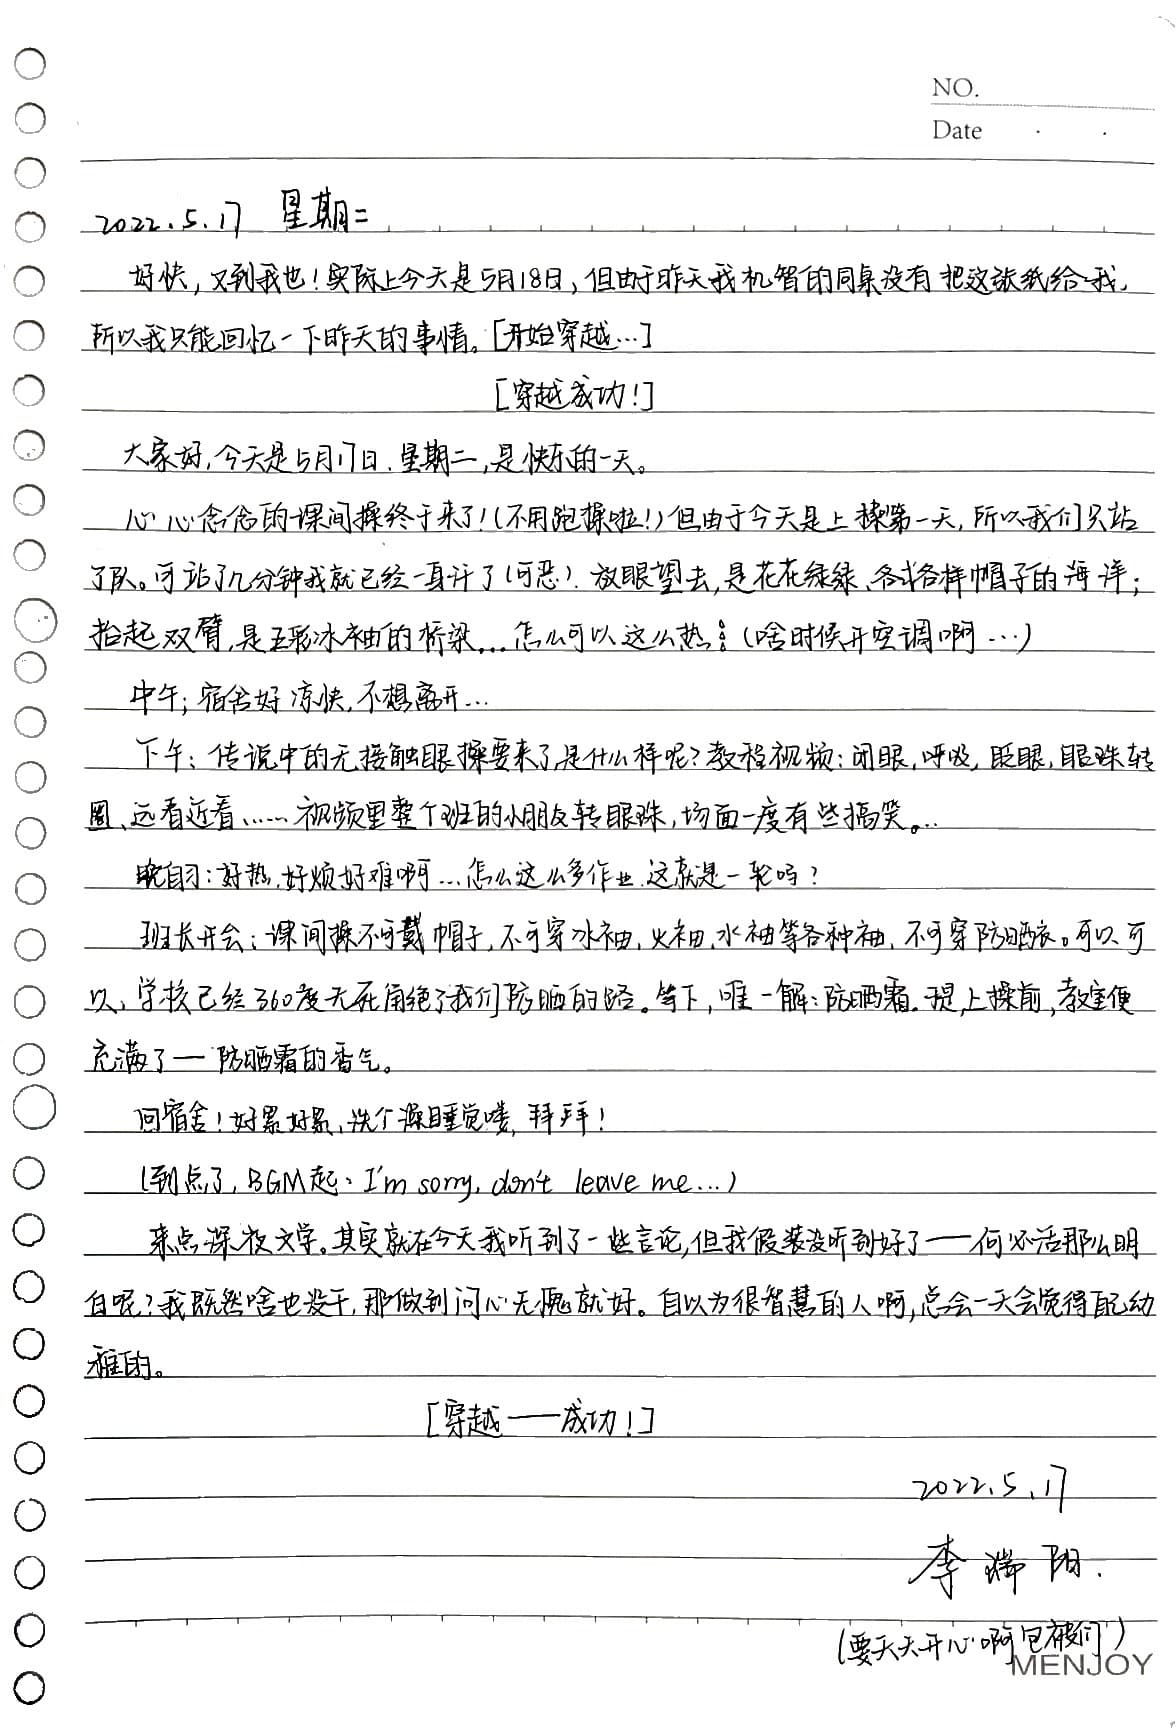 NO.
Date . .
2022.5.17 星期二
好快，又到我也！实际上今天是5月18日，但由于昨天我机智的同桌没有把这张纸给我，
所以我只能回忆一下昨天的事情。[开始穿越…]
[穿越成功！]
大家好，今天是5月17日，星期二，是快乐的一天。
心心念念的课间操终于来了！(不用跑操啦！)但由于今天是上操第一天，所以我们只站
了队。可站了几分钟我就已经一身汗了(可恶)．放眼望去，是花花绿绿、各式各样帽子的海洋；
抬起双臂，是五彩冰袖的桥梁…怎么可以这么热！(啥时候开空调啊…)
中午；宿舍好凉快，不想离开…
下午：传说中的无接触眼操要来了，是什么样呢？教程视频：闭眼，呼吸，眨眼，眼珠转
圈、远看近看……视频里整个班的小朋友转眼珠，场面一度有些搞笑。…
晚自习：好热，好烦好难啊…怎么这么多作业，这就是一轮吗？
班长开会：课间操不可戴帽子，不可穿冰袖，火袖，水袖等各种袖，不可穿防晒衣。可以可
以，学校已经360度无死角绝了我们防晒的路。等下，唯一解：防晒霜．于是，上操前，教室便
充满了—防晒霜的香气。
回宿舍！好累好累，洗个澡睡觉喽，拜拜！
(到点了，BGM起：I'm sorry, don't leave me…)
来点深夜文学。其实就在今天我听到了一些言论，但我假装没听到好了——何必活那么明
白呢？我既然啥也没干，那做到问心无愧就好。自以为很智慧的人啊，总会一天会觉得自己幼
稚的。
[穿越——成功！]
2022.5.17
李端阳．
(要天天开心啊宝被们)
MENJOY